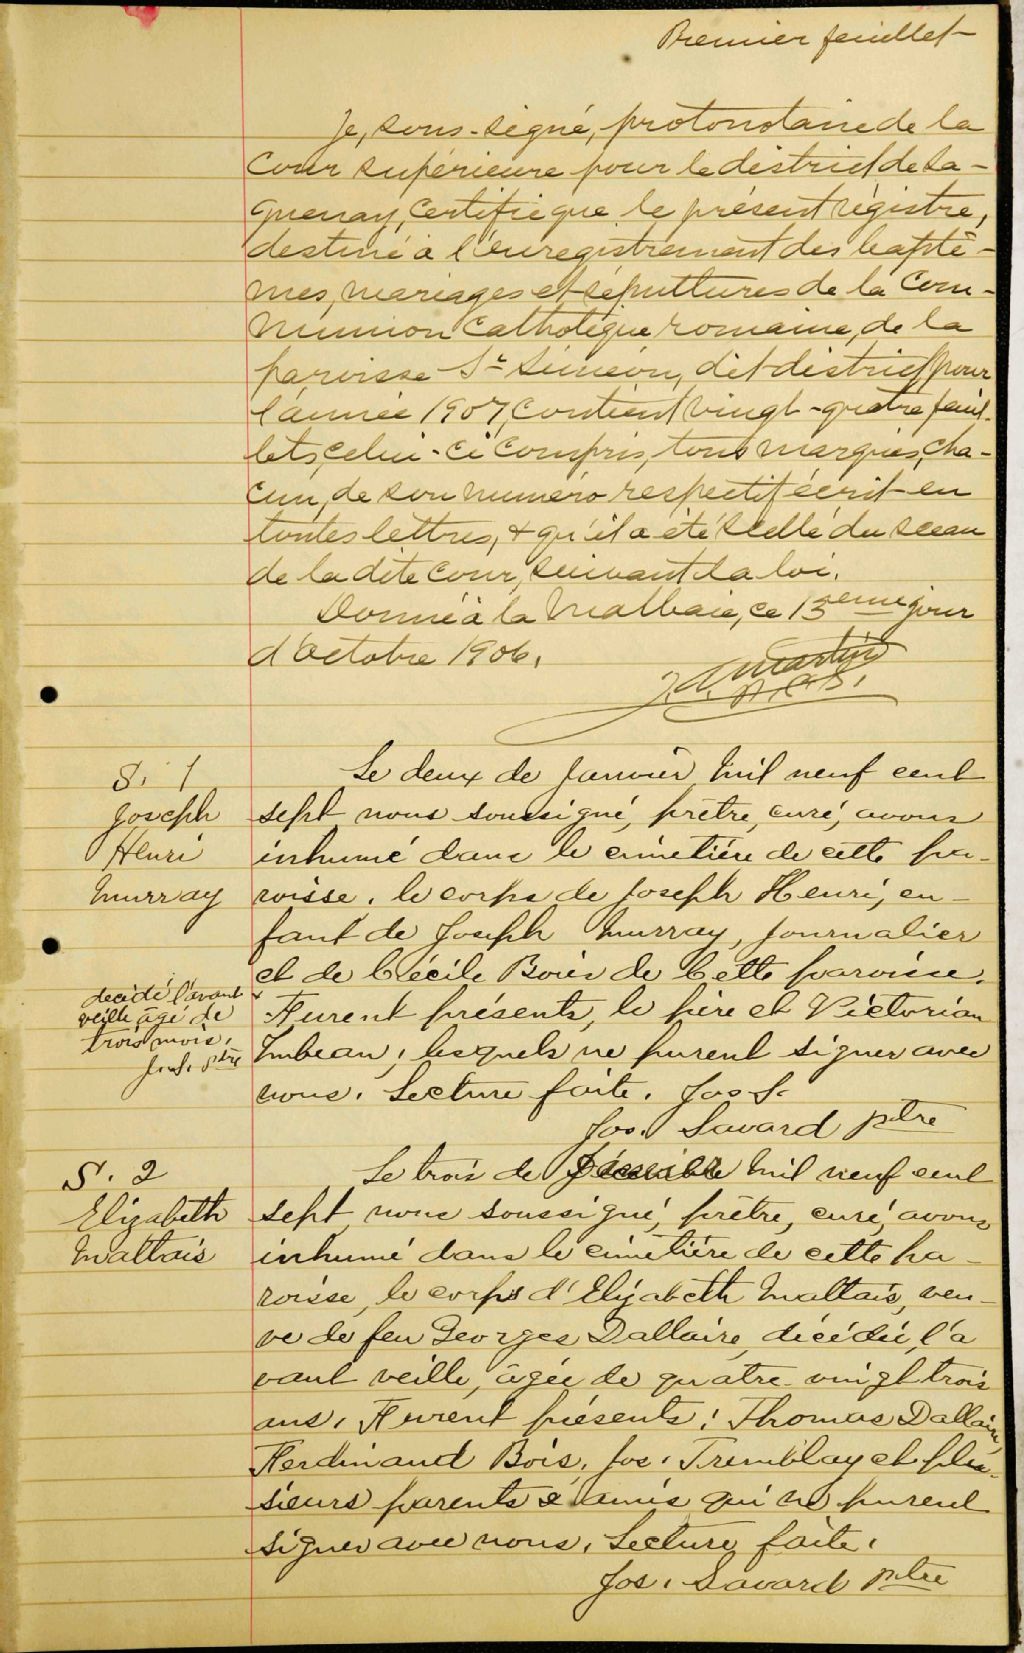 Premier feuillet
Je, sous-signé, protonotaire de la
Cour supérieure pour le district de Sa-
guenay, certifie que le présent régistre,
destiné à l'enregistrement des baptê-
mes, mariages et sépultures de la Com-
munion Catholique romaine, de la
paroisse St Siméon, dit district pour
l'année 1907, contient vingt-quatre feuil-
lets, celui-ci compris, tous marqués, cha-
cun, de son numéro respectif écrit en
toutes lettres, & qu'il a été scellé du sceau
de la dite cour, suivant la loi.
Donné à la Malbaie, ce 13eme jour
d'octobre 1906.
Martin
P.C.S.
S. 1
Joseph
Henri
Murray
Le deux de Janvier mil neuf cent
sept, nous soussigné, prêtre, curé, avons
inhumé dans le cimetière de cette pa-
roisse, le corps de Joseph Henri, en-
fant de Joseph Murray, journalier
et de Cécile Bois de Cette paroisse.
décédé l'avant
veille, âgé de
trois mois.
J.S. ptre
Furent présents, le père et Victorian
Imbeau, lesquels ne purent signer avec
nous. Lecture faite. Jos S.
Jos. Savard ptre
S. 2
Elizabeth
Maltais
Le trois de mil neuf cent
sept, nous soussigné, prêtre, curé, avons
inhumé dans le cimetière de cette pa-
roisse, le corps d'Elizabeth Maltais, veu-
ve de feu Georges Dallaire, décédée, l'a
vant veille, âgée de quatre-vingt trois
ans. Furent présents: Thomas Dallaire,
Ferdinand Bois, Jos. Tremblay et plu-
sieurs parents & amis qui ne purent
signer avec nous. Lecture faite.
Jos. Savard ptre